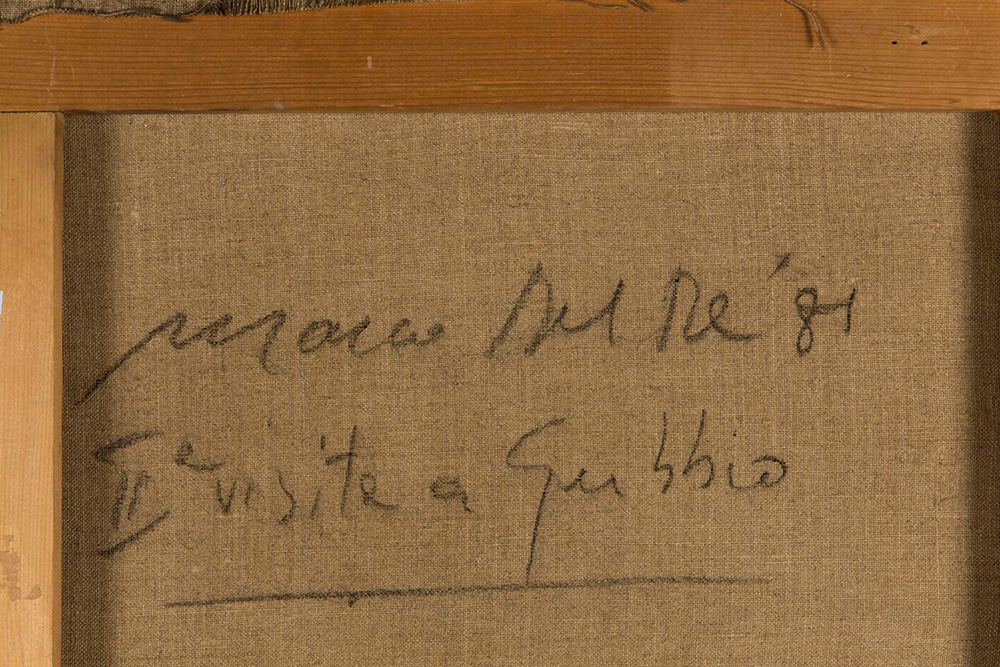 Marco Del Re '81
IIa visita a Gubbio